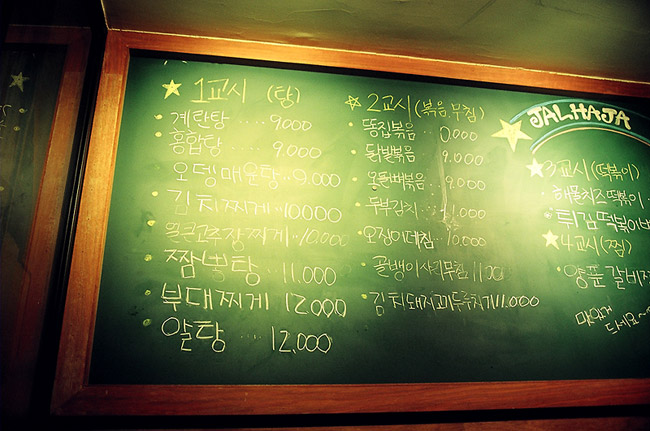 1교시 (탕)
계란탕 .... 9.000
홍합탕 ... 9.000
오뎅매운탕 .. 9.000
김치찌게 10000
얼큰고추장찌게 .. 10.000
짬뽕탕 11,000
부대찌게 12000
알탕 ... 12,000
2교시 (볶음,무침)
똥집볶음
닭발볶음 9.000
오돌뼈볶음 .. 9.000
두부김치
오징어데침 .. 10.000
골뱅이사리무침
김치돼지고기두루치기 11.000
JALHAJA
3교시 (떡볶이)
해물치즈떡볶이
튀김떡볶이
4교시 (찜)
양푼갈비
맛있게
드세요~